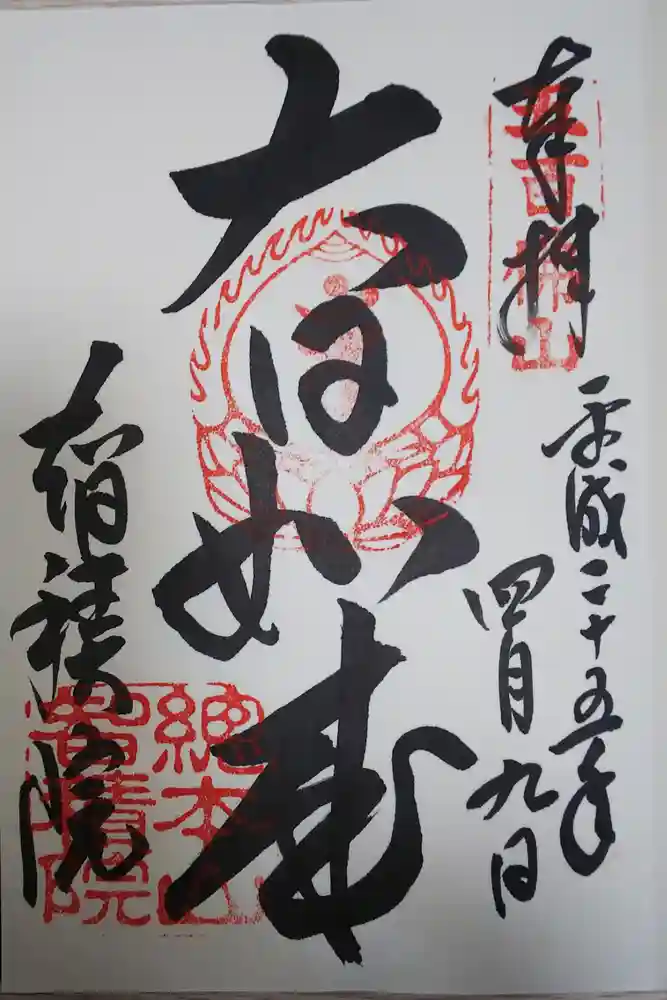 奉拝
五百佛山
平成二十五年
四月九日
大日如来
智積院
總本山
智積院